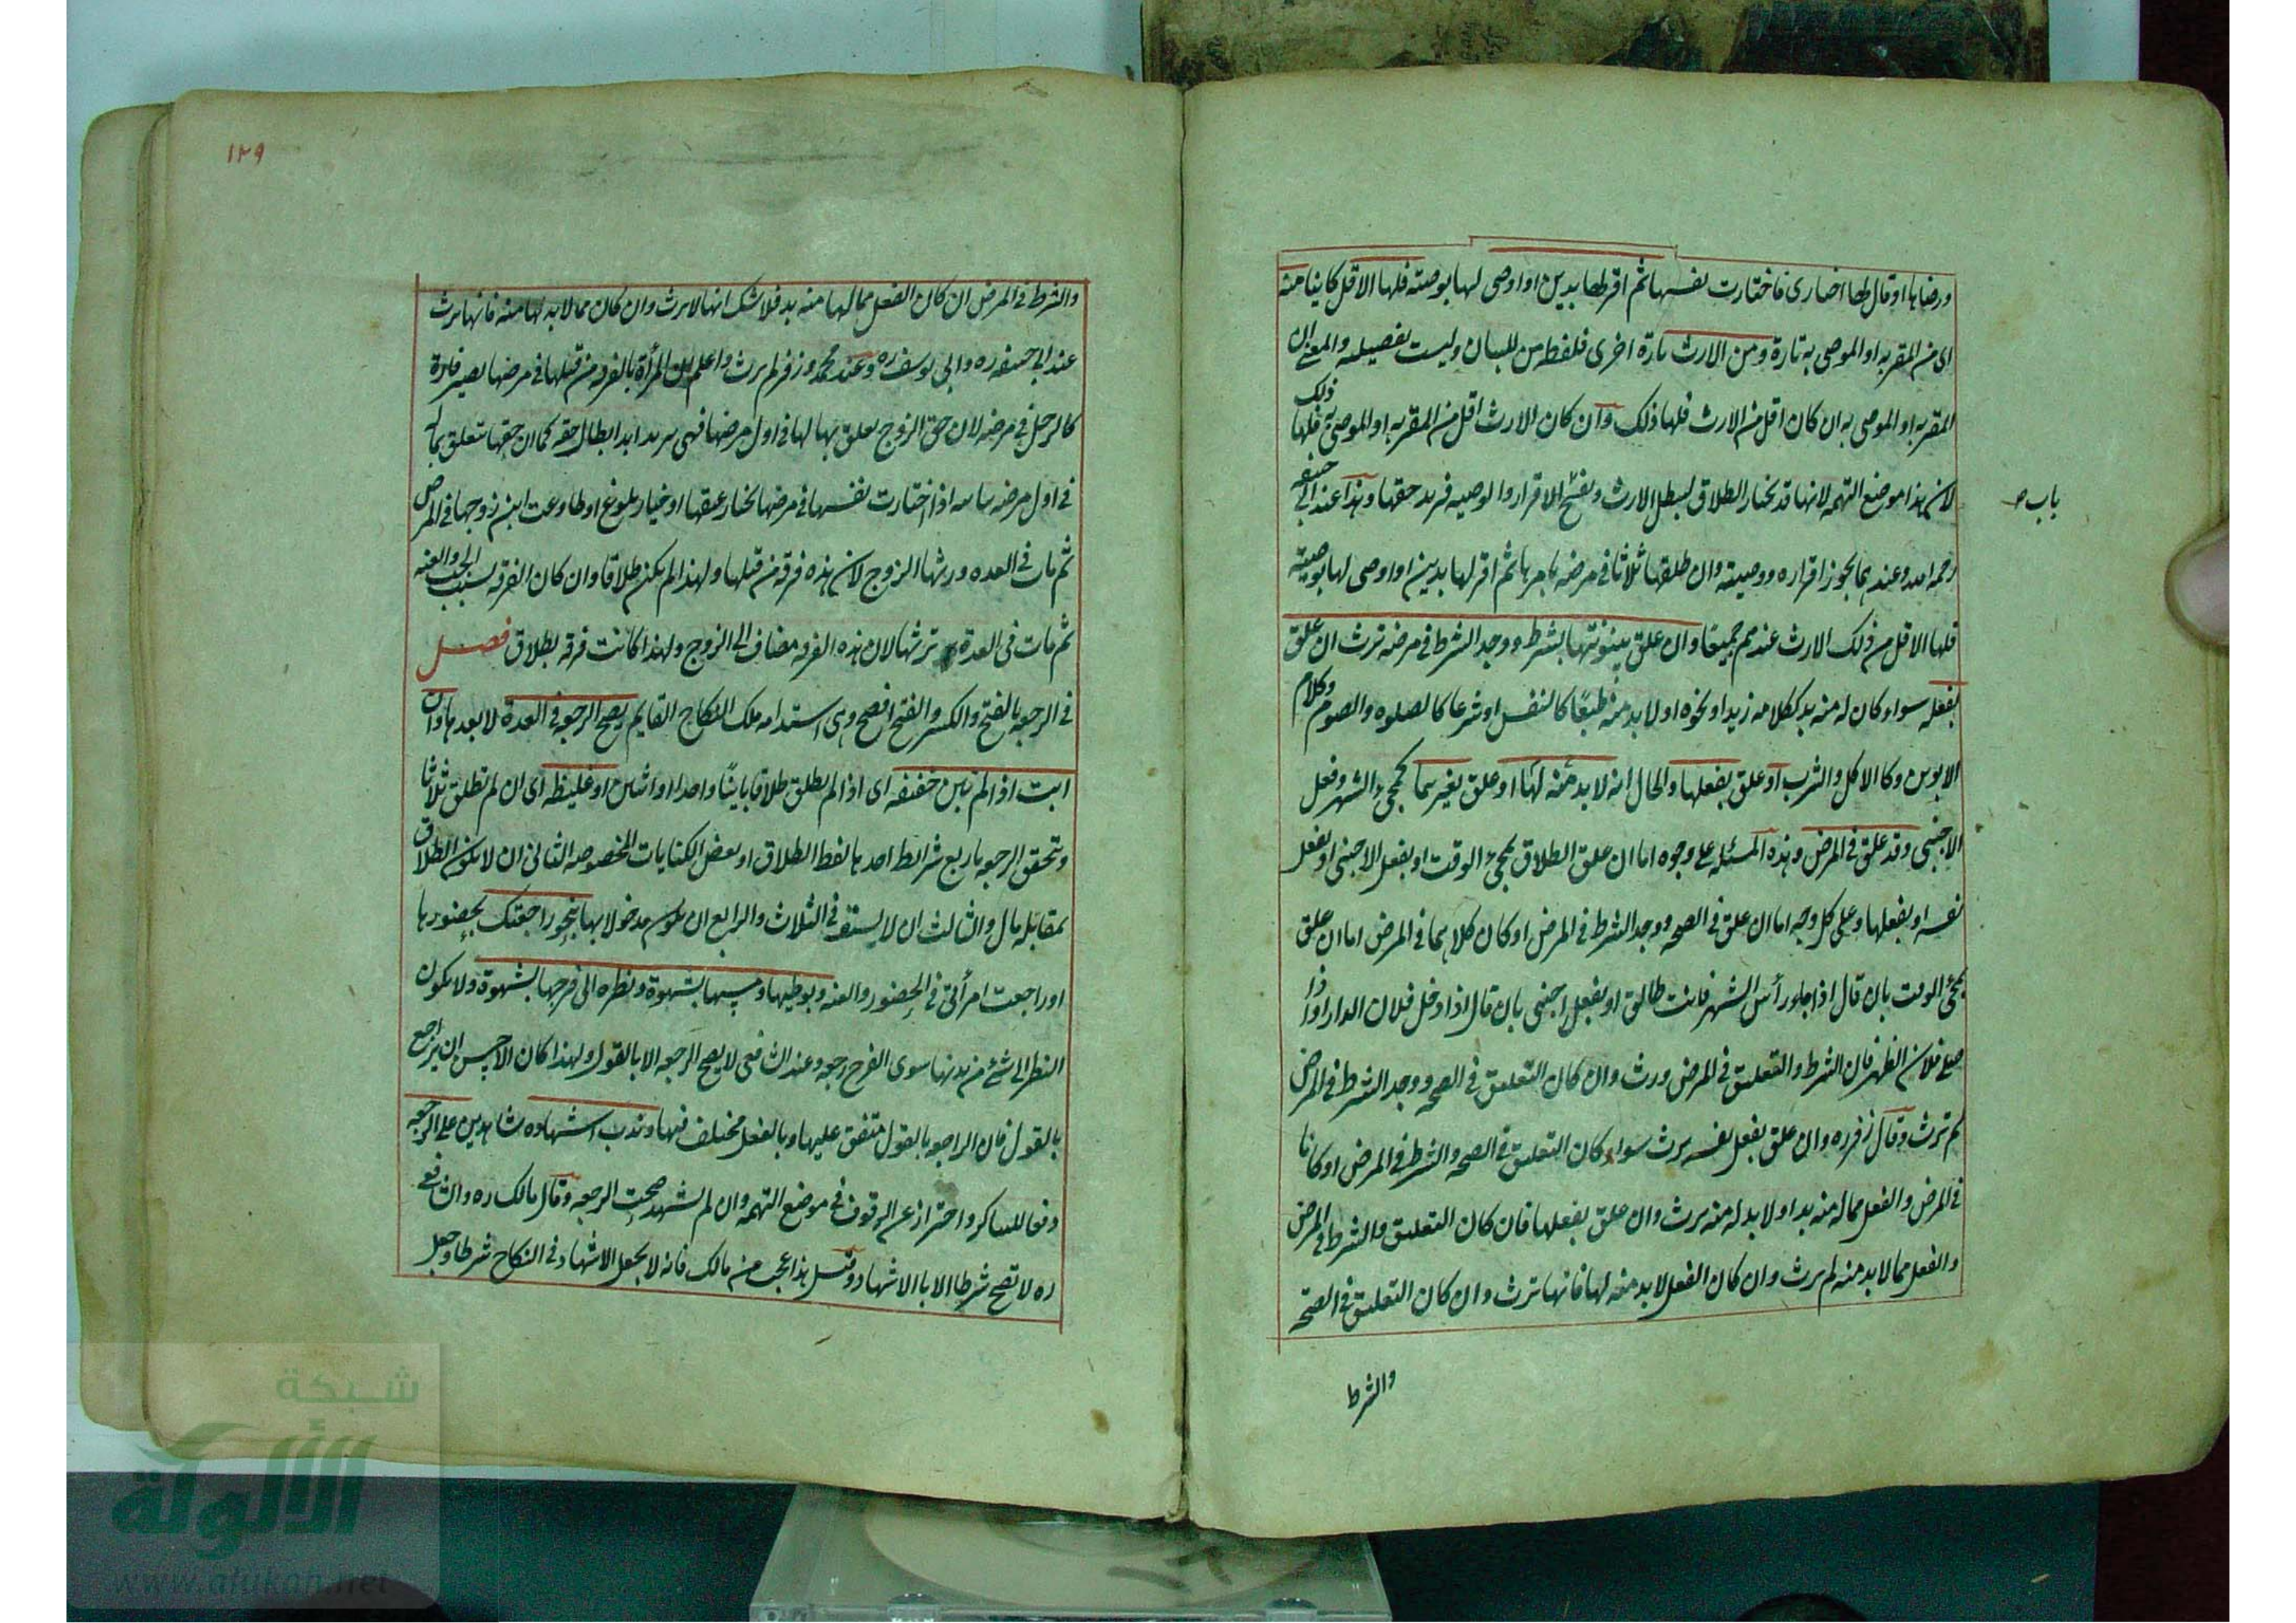 ورضاها او قال لها اختارى فاختارت نفسها ثم اقر لها بدين او اوصى لها بوصية فلها الاقل كاينا منه
اى من المقر به او الموصى به تارة ومن الارث تارة اخرى فلفظ من للبيان وليست تفصيلية والمعنى ان
المقر به او الموصى به ان كان اقل من الارث فلها ذلك وان كان الارث اقل من المقر به او الموصى به فلها ذلك
لان هذا موضع التهمة لانها قد تختار الطلاق ليبطل الارث ويفتح الاقرار والوصية فزيد حقها وهذا عند ابى حنيفة
باب
رحمه الله وعندهما يجوز اقراره ووصيته وان طلقها ثلاثا فى مرضه بامرها ثم اقر لها بدين او اوصى لها بوصية
فلها الاقل من ذلك الارث عندهم جميعا وان علق بينونتها بشرط ووجد الشرط فى مرضه ترث ان علق
بفعله سواء كان له منه بد ككلامه زيد او نحوه او لا بد منه طبعا كالنفس او شرعا كالصلوه والصوم وكلام
الابوين وكالاكل والشرب او علق بفعلها والحال انه لا بد منه لها او علق بغيرهما كمجئ الشهر وفعل
الاجنبى وقد علق فى المرض وهذه المسئلة على وجوه اما ان علق الطلاق بمجئ الوقت او بفعل الاجنبى او بفعل
نفسه او بفعلها وعلى كل وجه اما ان علق فى الصحه ووجد الشرط فى المرض او كان كلاهما فى المرض اما ان علق
بمجئ الوقت بان قال اذا جاء رأس الشهر فانت طالق او بفعل اجنبى بان قال اذا دخل فلان الدار او اذا
صلى فلان الظهر فان الشرط والتعليق فى المرض ورث وان كان التعليق فى الصحه ووجد الشرط فى المرض
لم ترث وقال زفر ره وان علق بفعل نفسه يرث سواء كان التعليق فى الصحه والشرط فى المرض او كانا
فى المرض والفعل مما له منه بد او لا بد له منه يرث وان علق بفعلها فان كان التعليق والشرط فى المرض
والفعل مما لا بد منه لم يرث وان كان الفعل لا بد منه لها فانها ترث وان كان التعليق فى الصحة
والشرط
١٢٩
والشرط فى المرض ان كان الفعل مما لها منه بد فلا شك انها لا يرث وان كان مما لا بد لها منه فانها يرث
عند ابى حنيفه ره وابى يوسف ره وعند محمد وزفر لم يرث واعلم ان المرأة بالفرقه من قبلها فى مرضها يصير فارة
كالرجل فى مرضه لان حق الزوج يعلق بمالها فى اول مرضها فهى يريد ابدا ابطال حقه كما ان حقها يتعلق بماله
فى اول مرضه اذا اختارت نفسها فى مرضها بخيار عتقها او خيار بلوغ او طاوعت ابن زوجها فى المرض
ثم مات فى العده ورثها الزوج لان هذه فرقة من قبلها ولهذا لم يكن طلاقا وان كان الفرقه بسبب الجب والعنه
ثم مات فى العدة ترثها لان هذه الفرقه مضاف الى الزوج ولهذا كانت فرقه بطلاق فصل
فى الرجعه بالفتح والكسر والفتح افصح وهى استدامه ملك النكاح القايم يصح الرجعه فى العدة لا بعدها وان
ابت اذا لم تبن خفيفه اى اذا لم يطلق طلاقا باينا واحدا او اثنين او غليظه اى ان لم تطلق ثلاثا
وتتحقق الرجعه باربع شرائط احدها لفظ الطلاق او بعض الكنايات المخصوصه الثانى ان لا يكون الطلاق
بمقابله مال والثالث ان لا يستوفى الثلاث والرابع ان يكون مدخولا بها بنحو راجعتك بحضورها
او راجعت امرأتى فى الحضور والغيبه وبوطيها ومسها بشهوة ونظره الى فرجها بشهوة ولا يكون
النظر الى شئ من بدنها سوى الفرج رجعه وعند الشافعى لا يصح الرجعه الا بالقول ولهذا كان الاحسن ان يراجع
بالقول فان المراجعه بالقول متفق عليها وبالفعل مختلف فيها وندب اشهاده شاهدين على الرجعه
دفعا للتناكر واحترازا عن الوقوف فى موضع التهمه وان لم يشهد صحت الرجعه وقال مالك ره والشافعى
ره لا تصح شرطا الا بالاشهاد وقيل هذا عجب من مالك فانه لا يجعل الاشهاد فى النكاح شرطا وجعل
شبكة
الألوكة
www.alukah.net